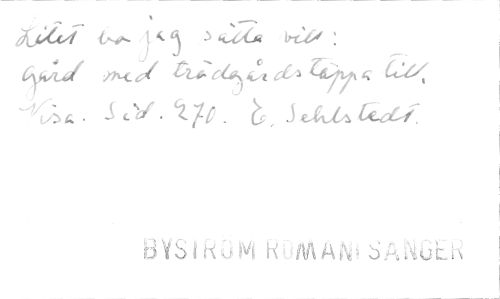 Litet bo jag sätta vill:
gård med trädgårdstäppa till.
Visa. Sid. 270. E. Sehlstedt.
BYSTRÖM ROMANSSÅNGER